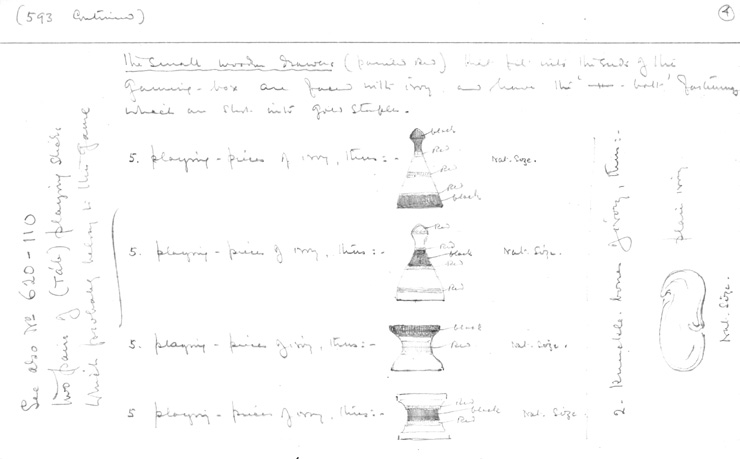 (593 Continued)
4
The Small wooden drawers (painted red) that fit into the ends of the
gaming-box are faced with ivory, and have the bolt fastenings
which are shot into gold staples.
5. playing-pieces of ivory, thus:-
black
Red
Red
Red
black
Nat. Size.
5. playing-pieces of ivory, thus:-
Red
Red
black
Red
Red
Nat. Size.
5. playing-pieces of ivory, thus:-
black
Red
Nat. Size.
5 playing-pieces of ivory, thus:-
Red
black
Red
Nat. Size
See also No 620-110
Two pairs of (Tâb) playing sticks
which probably belong to the game
2. Knuckle-bones of ivory, thus:-
plain ivory
Nat. Size.